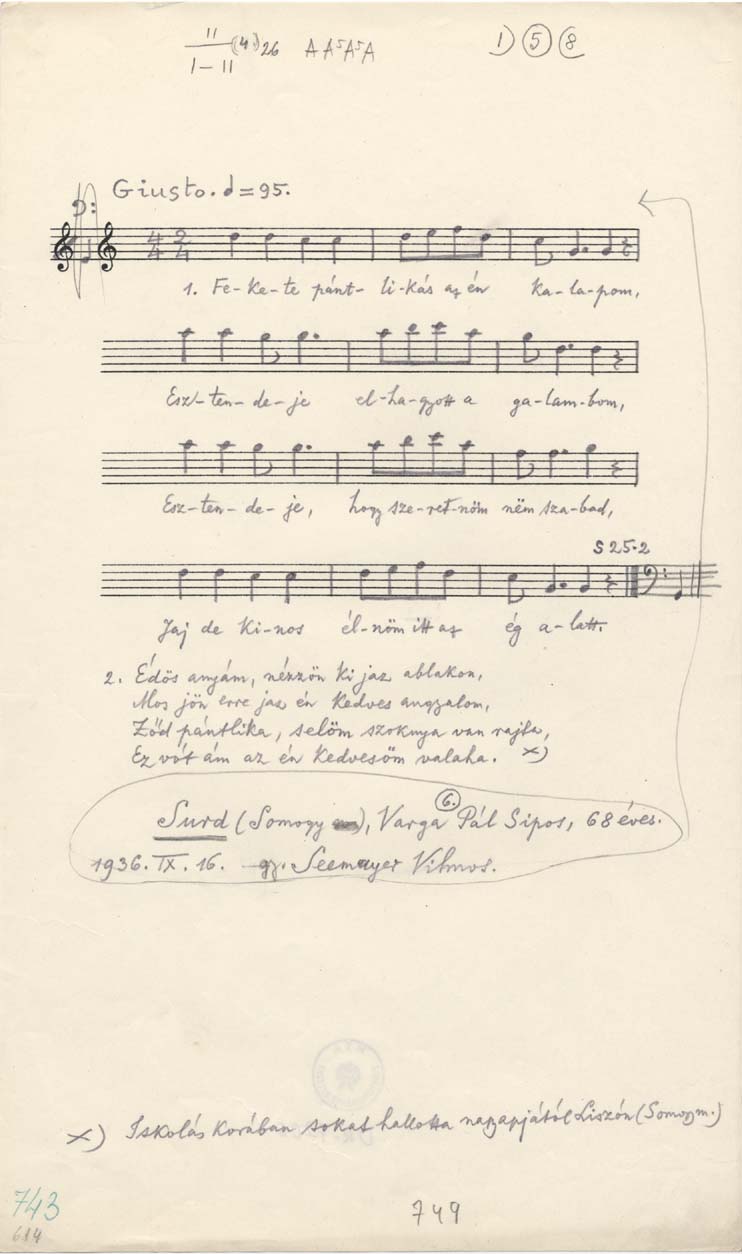 II
I-II (4) 26 A A⁵A⁵A 1) ⑤ 8
Giusto. d = 95.
1. Fe-ke-te pánt-li-kás az én ka-la-pom,
Esz-ten-de-je el-ha-gyott a ga-lam-bom,
Esz-ten-de-je, hogy sze-ret-nöm nëm sza-bad,
S 25.2
Jaj de ki-nos él-nöm itt az ég a-latt.
2. Édös anyám, nézzön ki jaz ablakon,
Mos jön erre jaz én kedves angyalom,
Ződ pántlika, selöm szoknya van rajta,
Ez vót ám az én kedvesöm valaha. x)
6.
Surd (Somogy), Varga Pál Sipos, 68 éves.
1936. IX. 16. gy. Seemayer Vilmos.
x) Iskolás korában sokat hallotta nagyapjától Liszón (Somogym.)
743
614
749